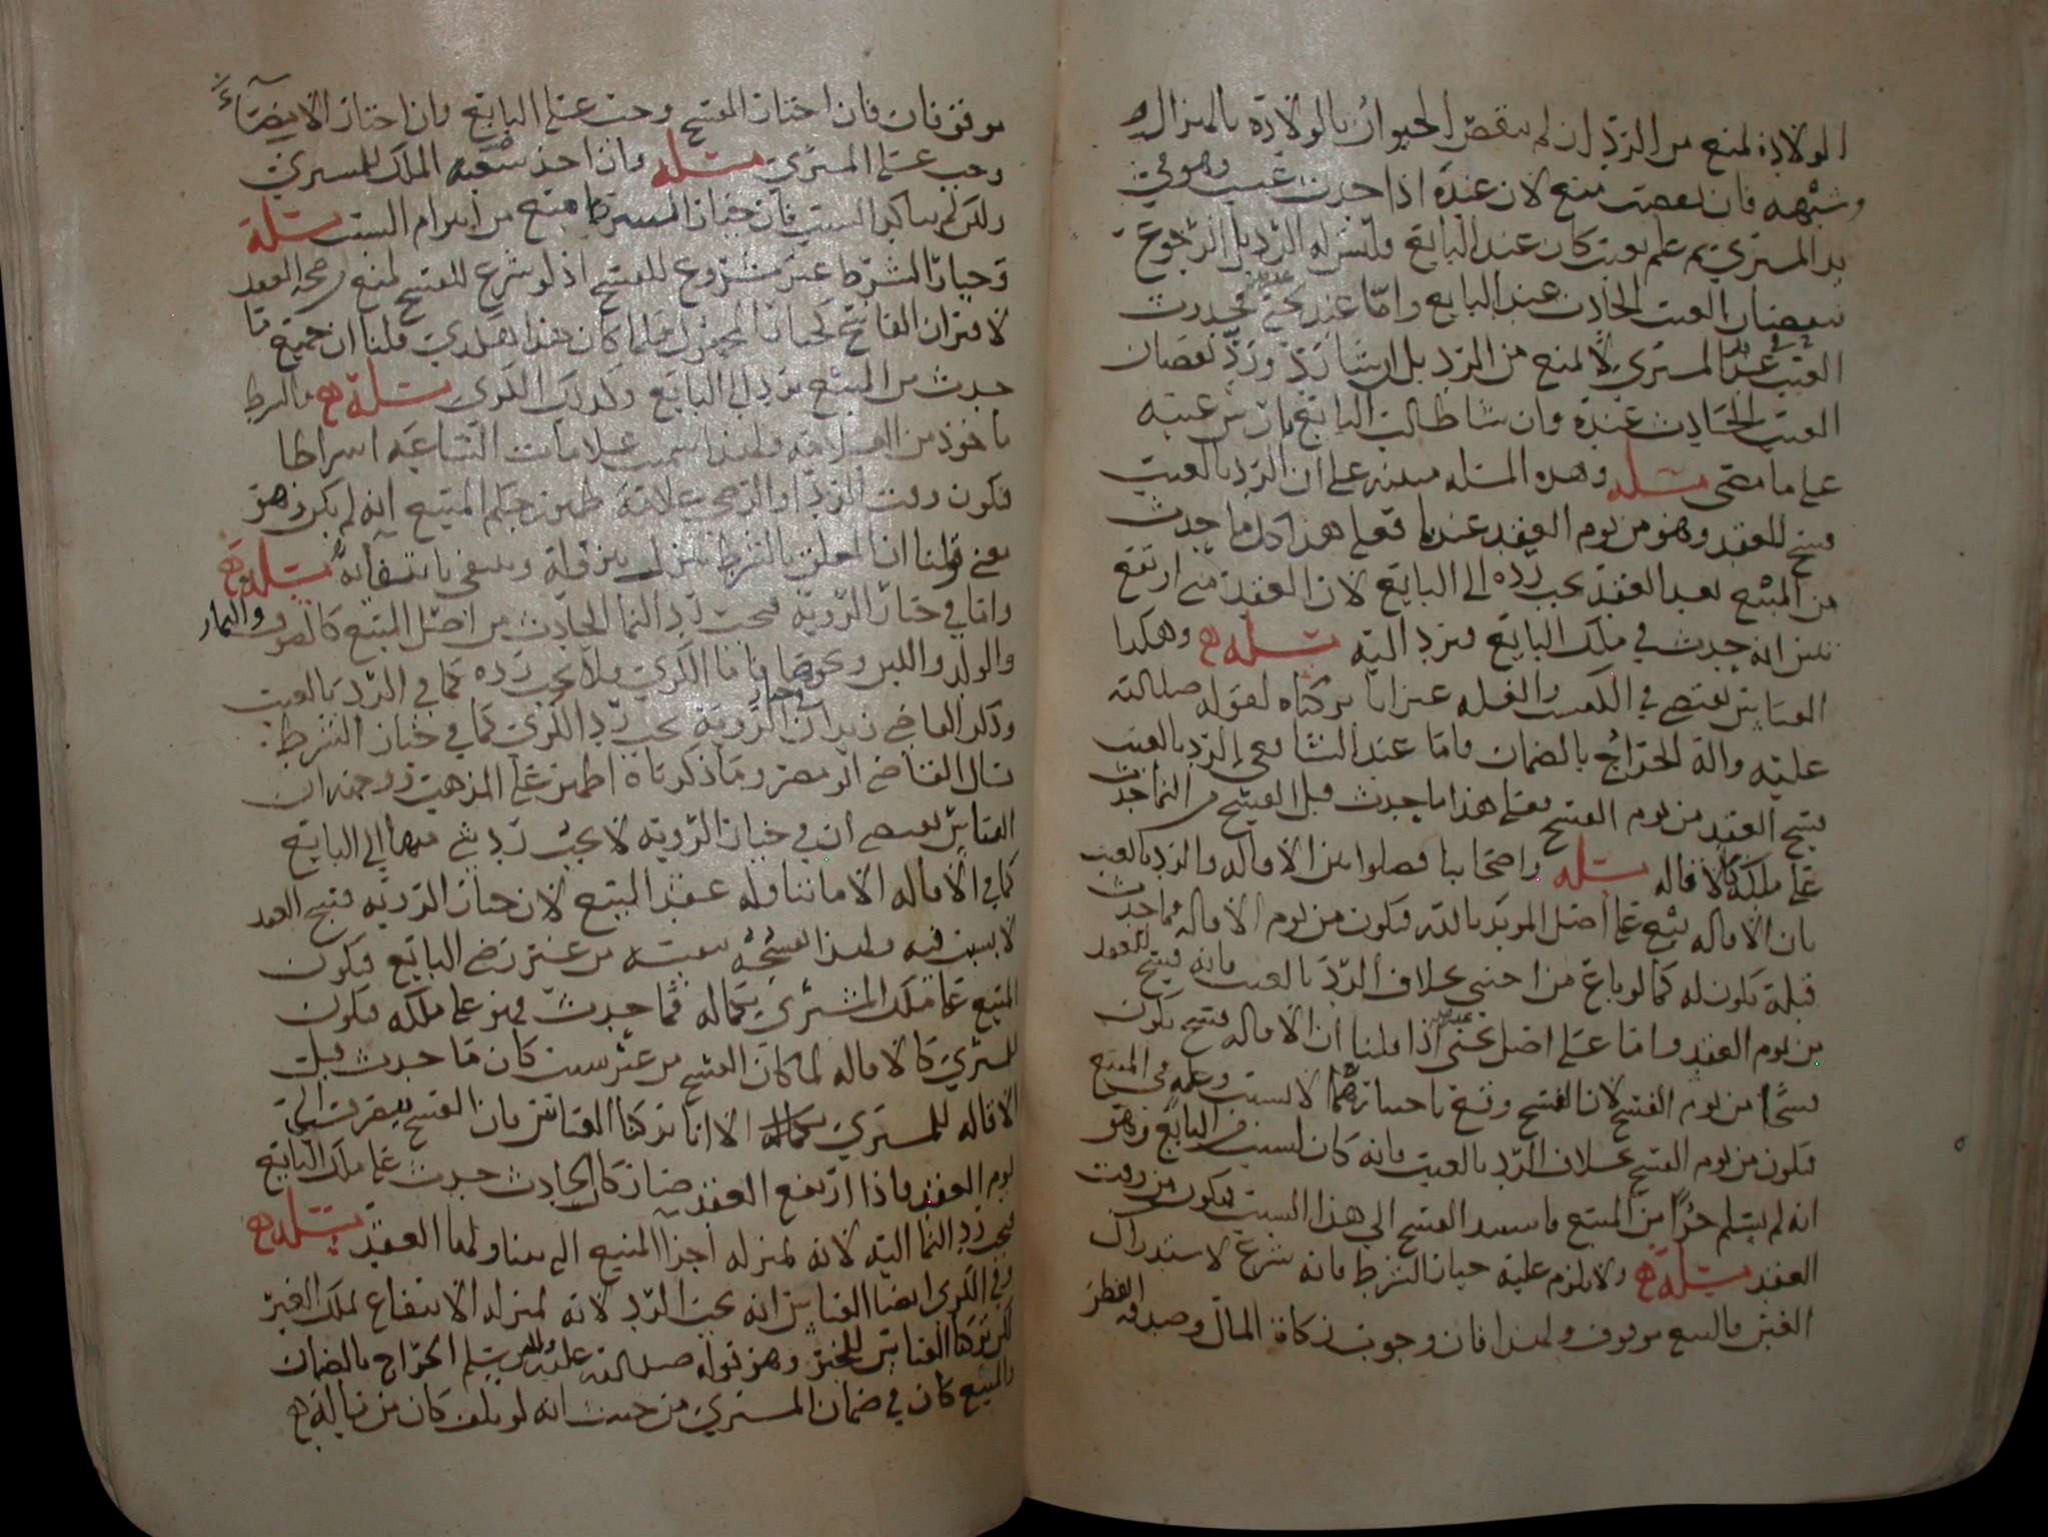 الولادة لمنع من الرد ان لم ينقص الحيوان بالولادة بالهزال
وشبهه فان نقصت منع لان عنده اذا حدث عيب وهو في
يد المشتري ثم علم بعيب كان عند البايع فليس له الرد بل الرجوع
بنقصان العيب الحادث عند البايع واما عند يحيى فحدوث
العيب عند المشتري لا يمنع من الرد بل ان شا رد ورد نقصان
العيب الحادث عنده وان شا طالب البايع بارش عيبه
على ما مضى مسئلة وهذه المسئلة مبنية على ان الرد بالعيب
فسخ للعقد وهو من يوم العقد عندنا فعلى هذا كل ما حدث
من المبيع بعد العقد يجب رده الى البايع لان العقد متى ارتفع
تبين انه حدث في ملك البايع فيرد اليه مسئلة وهكذا
القياس يقتضي في الكسب والغلة غير انا تركناه لقوله صلى الله
عليه واله الخراج بالضمان واما عند الشافعي الرد بالعيب
فسخ العقد من يوم الفسخ فعلى هذا ما حدث قبل الفسخ من النما حدث
على ملكه كالاقالة مسئلة واصحابنا فصلوا بين الاقالة والرد بالعيب
بان الاقالة بيع على اصل المويد بالله فيكون من يوم الاقالة فما حدث
قبله يكون له كما لو باع من اجنبي بخلاف الرد بالعيب فانه فسخ للعقد
من يوم العقد واما على اصل يحيى اذا قلنا ان الاقالة فسخ يكون
فسخا من يوم الفسخ لان الفسخ وقع باختيارهما لا لسبب وعلة في المبيع
فيكون من يوم الفسخ بخلاف الرد بالعيب فانه كان لسبب من البايع وهو
انه لم يسلم جزا من المبيع فاستند الفسخ الى هذا السبب فيكون من وقت
العقد مسئلة ولا يلزم عليه خيار الشرط فانه شرع لاستدراك
الغبن فالبيع موقوف ولهذا فان وجوب زكاة المال وصدقة الفطر
موقوفان فان اختار الفسخ وجب على البايع وان اختار الامضاء
وجب على المشتري مسئلة واذا اخذ شفعه الملك للمشتري
ولكن لم يتاكد السبب فان خيار الشرط منع من ابرام السبب مسئلة
وخيار الشرط غير مشروع للفسخ اذ لو شرع للفسخ لمنع صحة العقد
لاقتران الفاسخ كخيار المجهول فلما كان هذا هكذى قلنا ان جميع ما
حدث من المبيع يرد الى البايع وكذلك الكرى مسئلة والشرط
ماخوذ من العلامة ولهذا سميت علامات الساعة اشراطا
فيكون وقت الرد او الرضى علامة ظهور حكم المبيع انه لم يكن وهو
معنى قولنا ان المعلق بالشرط ينزل بنزوله وينتفي بانتفائه مسئلة
واما في خيار الروية فيجب رد النما الحادث من اصل المبيع كالصوف والثمار
والولد واللبن ونحوها فاما الكرى فلا يجب رده كما في الرد بالعيب
وذكر القاضي زيد ان في خيار الروية يجب رد الكرى كما في خيار الشرط
قال القاضي ابو مضر وما ذكرناه اظهر على المذهب ووجهه ان
القياس يقتضي ان في خيار الروية لا يجب رد شي منها الى البايع
كما في الاقالة الا ما تناوله عقد البيع لان خيار الروية فسخ العقد
لا بسبب فيه ولهذا الفسخ بعيبه من غير رضى البايع فيكون
المبيع على ملك المشتري بكماله فما حدث فهو على ملكه فيكون
للمشتري كالاقالة لما كان الفسخ من غير سبب كان ما حدث قبل
الاقالة للمشتري الا انا تركنا القياس بان الفسخ ينصرف الى
يوم العقد فاذا ارتفع العقد صار كان الحادث حدث على ملك البايع
فيجب رد النما اليه لانه بمنزلة اجزا المبيع التي تناولها العقد مسئلة
وفي الكرى ايضا القياس انه يجب الرد لانه بمنزلة الانتفاع بملك الغير
لكن تركنا القياس للخبر وهو قوله صلى الله عليه وسلم الخراج بالضمان
والمبيع كان في ضمان المشتري من حيث انه لو تلف كان من ماله